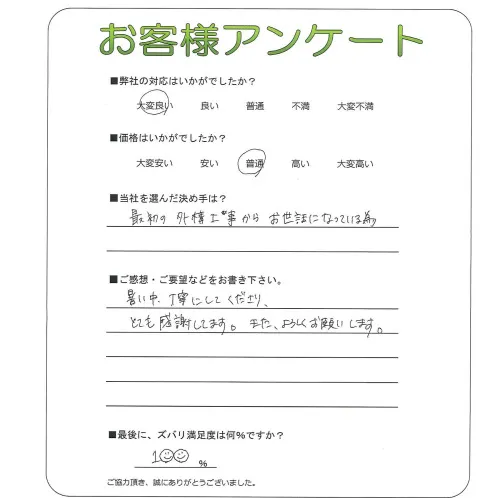 お客様アンケート
■弊社の対応はいかがでしたか?
大変良い 良い 普通 不満 大変不満
■価格はいかがでしたか?
大変安い 安い 普通 高い 大変高い
■当社を選んだ決め手は?
最初の外構工事からお世話になっている為
■ご感想・ご要望などをお書き下さい。
暑い中、丁寧にしてくださり、
とても感謝してます。また、よろしくお願いします。
■最後に、ズバリ満足度は何%ですか?
100 %
ご協力頂き、誠にありがとうございました。